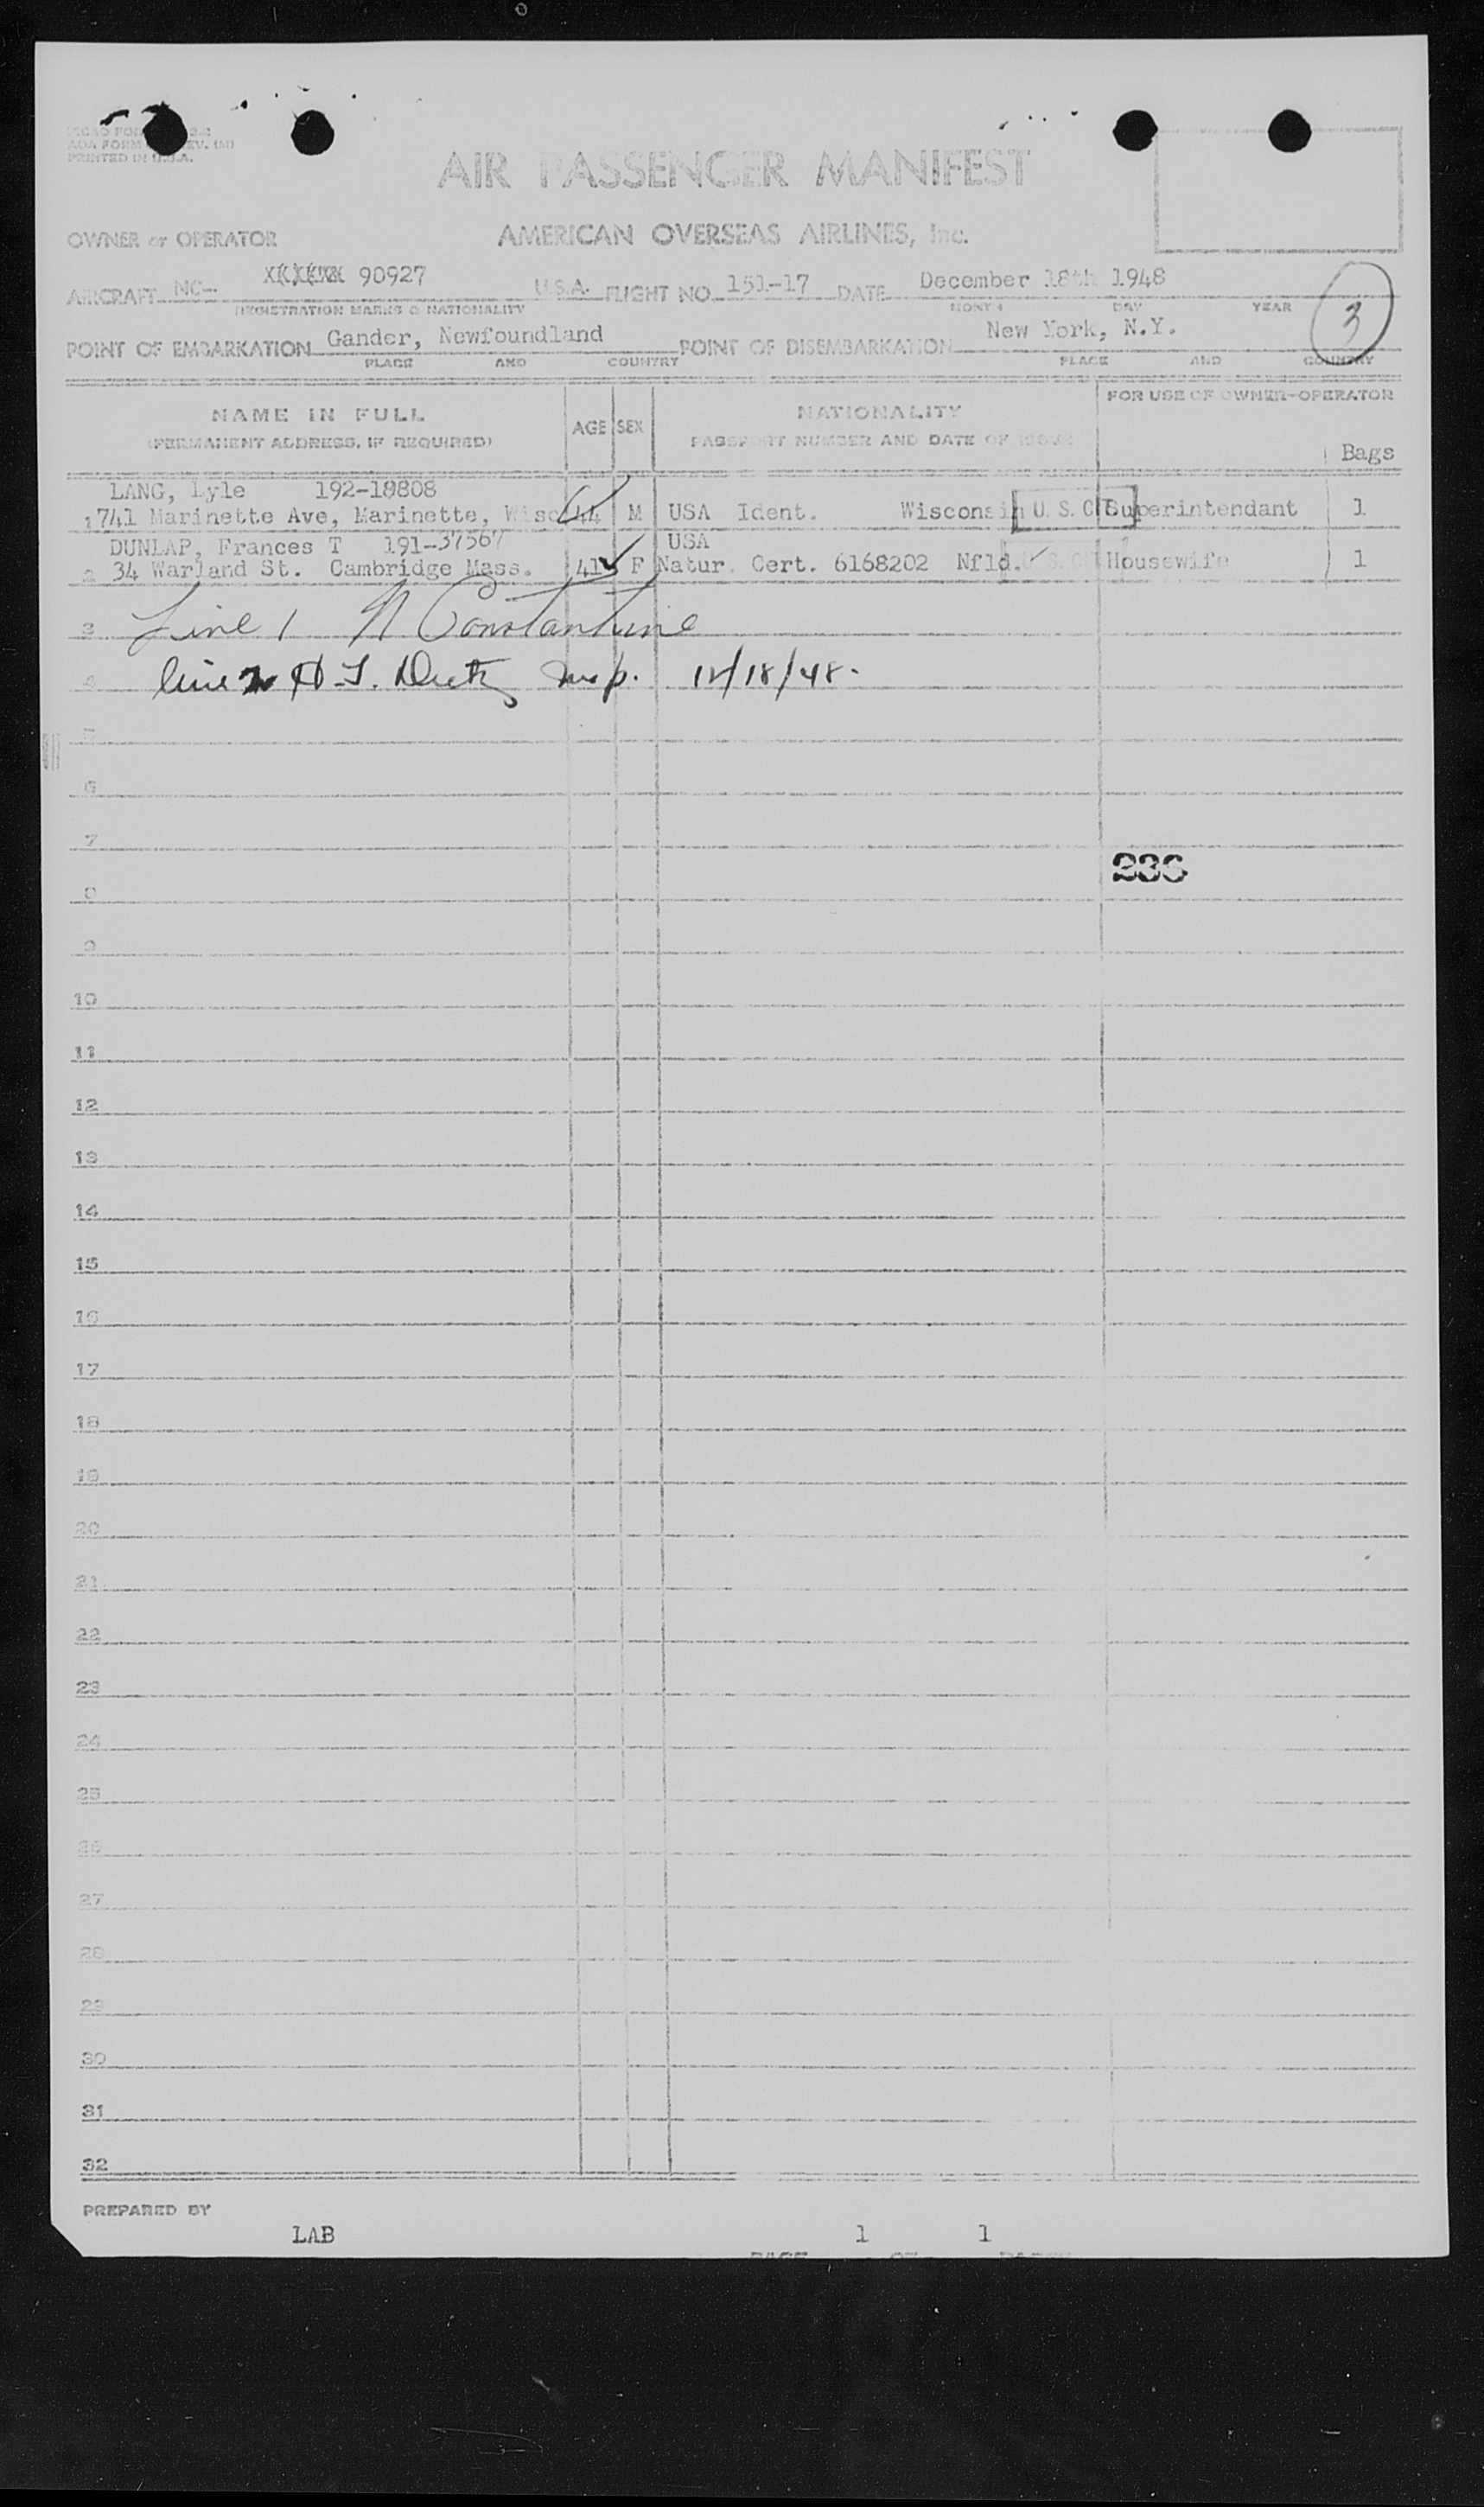 PRINTED IN U.S.A.
AIR PASSENGER MANIFEST
OWNER or OPERATOR AMERICAN OVERSEAS AIRLINES, Inc.
AIRCRAFT NC- 90927 U.S.A. FLIGHT NO. 151-17 DATE December 18th 1948
REGISTRATION MARKS & NATIONALITY MONTH DAY YEAR
3
POINT OF EMBARKATION Gander, Newfoundland POINT OF DISEMBARKATION New York, N.Y.
PLACE AND COUNTRY PLACE AND COUNTRY
NAME IN FULL AGE SEX NATIONALITY FOR USE OF OWNER-OPERATOR
(PERMANENT ADDRESS, IF REQUIRED) PASSPORT NUMBER AND DATE OF ISSUE Bags
LANG, Lyle 192-18808
1 741 Marinette Ave, Marinette, Wisc 44 M USA Ident. Wisconsin U.S.C. Superintendant 1
DUNLAP, Frances T 191-37567 USA
2 34 Warland St. Cambridge Mass. 41 F Natur. Cert. 6168202 Nfld. Housewife 1
3 Line 1 N Constantine
4 line 2 Insp. 12/18/48.
5
6
7
236
8
9
10
11
12
13
14
15
16
17
18
19
20
21
22
23
24
25
26
27
28
29
30
31
32
PREPARED BY
LAB 1 1